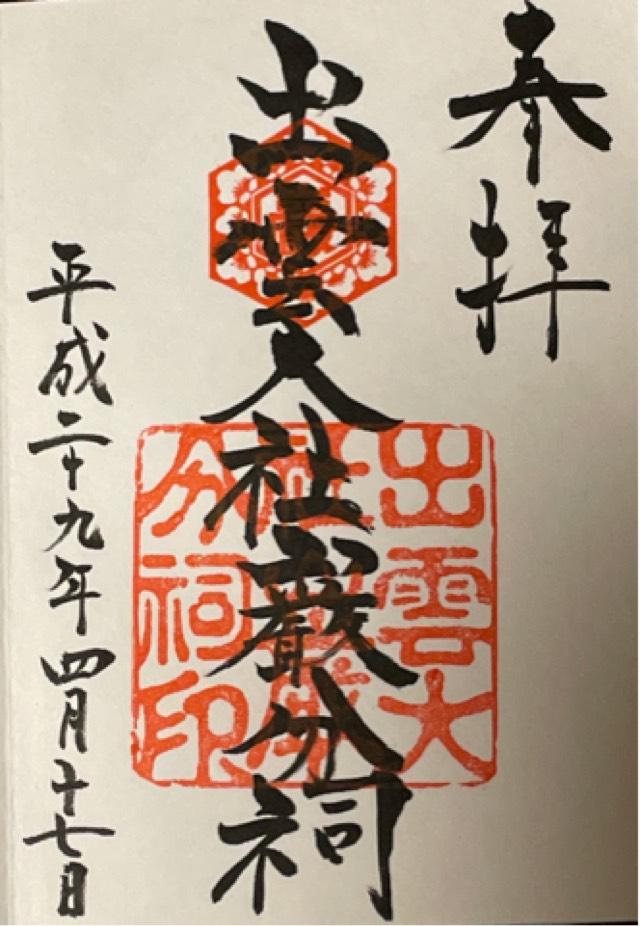 奉拝
出雲大社巌分祠
平成二十九年四月十七日
出雲大
社
分祠印